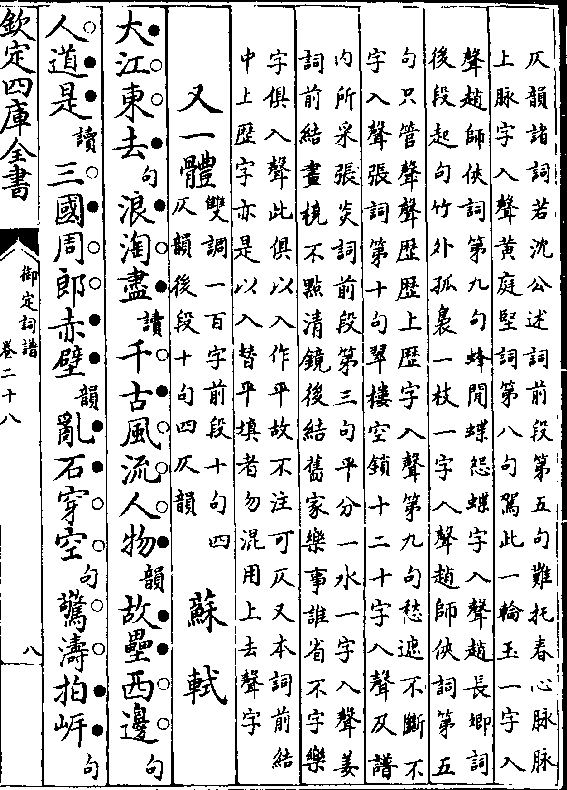 仄韻諸詞若沈公述詞前段第五句難托春心脈脈
上脉字入聲黄庭堅詞第八句駕此一輪玉一字入
聲趙師俠詞第九句蜂閒蝶怨蝶字入聲趙長卿詞
後段起句竹外孤裊一枝一字入聲趙師俠詞第五
句只管聲聲歴歴上歴字入聲第九句愁遮不斷不
字入聲張詞第十句翠樓空鎖十二十字入聲及譜
内所采張炎詞前段第三句平分一水一字入聲姜
詞前結畫橈不點清鏡後結舊家樂事誰省不字樂
字俱入聲此俱以入作平故不注可仄又本詞前結
中上歴字亦是以入替平填者勿混用上去聲字
又一體 雙調一百字前段十句四
仄韻後段十句四仄韻 蘇軾
大江東去句浪淘盡讀千古風流人物韻故壘西邊句
人道是讀三國周郎赤壁韻亂石穿空句驚濤拍岍句
欽定四庫全書
御定詞譜
卷二十八
八